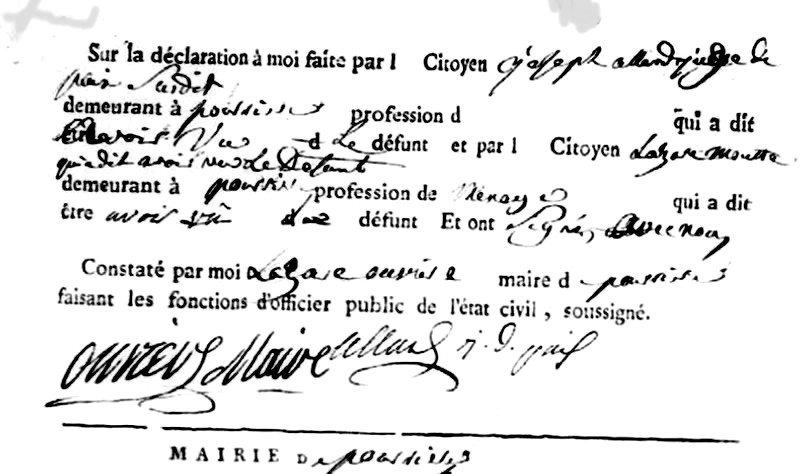 Sur la déclaration à moi faite par l Citoyen joseph allard juge de
paix susdit
demeurant à poussisse profession d qui a dit
avoir Vu d Le défunt et par l Citoyen Lazare moutte
qui a dit avoir vu Le Défunt
demeurant à poussisse profession de qui a dit
être avoir vû défunt Et ont Signés avec nous
Constaté par moi Lazare ouvriere maire d poussisse
faisant les fonctions d'officier public de l'état civil, soussigné.
Maire allard j. d. paix
MAIRIE De poussisse